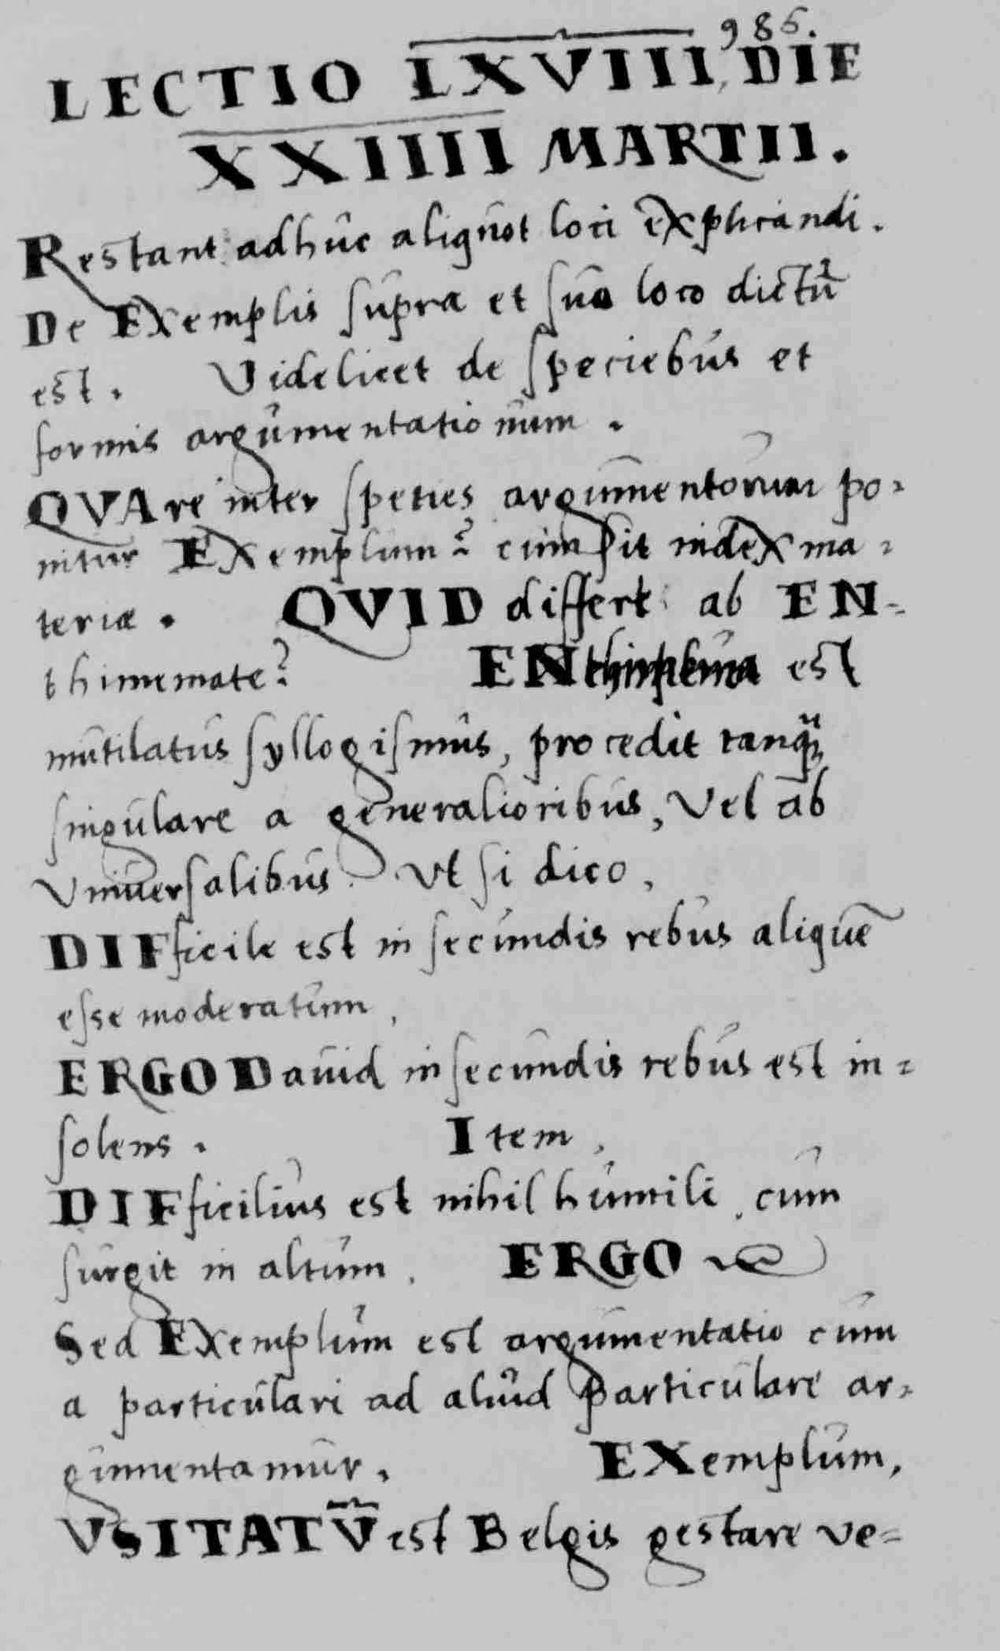 985.
LECTIO LXVIII, DIE
XXIIII MARTII.
Restant adhuc aliquot loci explicandi.
De Exemplis supra et suo loco dictũ
est. Videlicet de speciebus et
formis argumentationum.
QVAre inter species argumentorum po-
nitur Exemplum? cum sit index ma-
teriæ. QVID differt ab EN-
thimemate? EN est
mutilatus syllogismus, procedit tanq̃
singulare a generalioribus, Vel ab
Vniuersalibus. Vt si dico,
DIFficile est in secundis rebus aliquẽ
esse moderatum,
ERGO Dauid in secundis rebus est in-
solens. Item,
DIFficilius est nihil humili, cum
surgit in altum. ERGO
Sed Exemplum est argumentatio cum
a particulari ad aliud particulare ar-
gumentamur. EXemplum,
VSITATṼ est Belgis gestare ve-